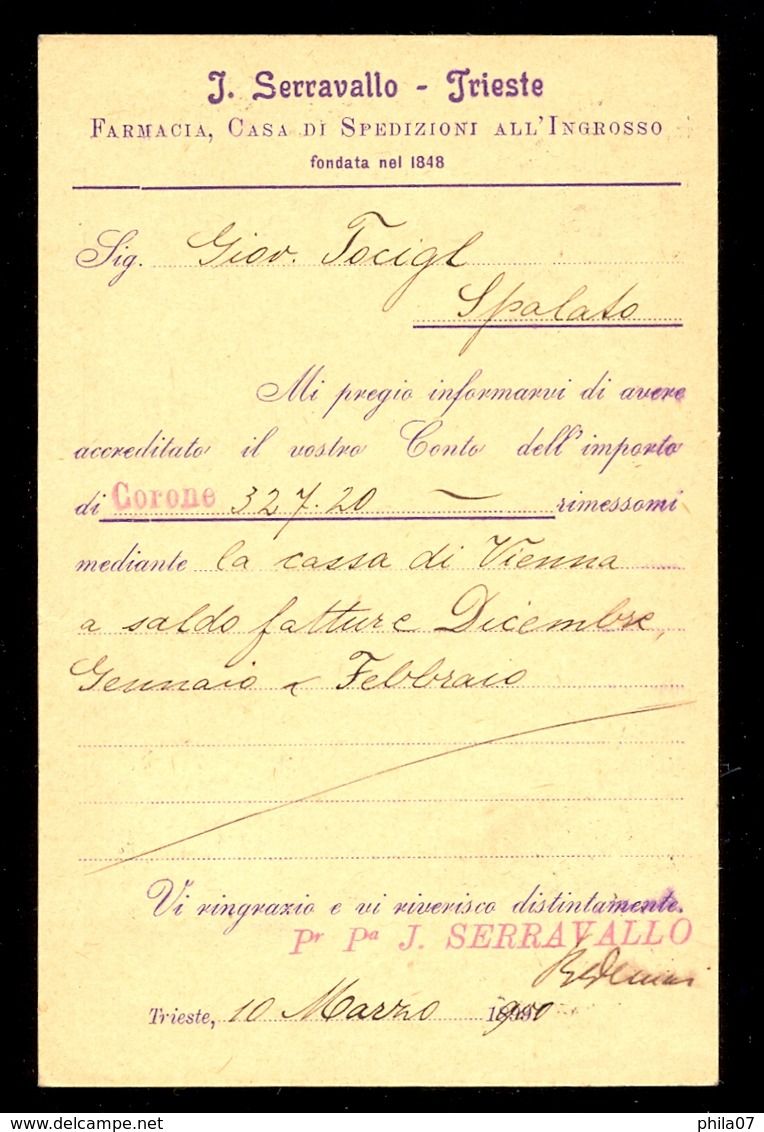 J. Serravallo - Trieste
FARMACIA, CASA DI SPEDIZIONI ALL'INGROSSO
fondata nel 1848
Sig. Giov. Tocigl
Spalato
Mi pregio informarvi di avere
accreditato il vostro Conto dell'importo
di Corone 327.20 — rimessomi
mediante la cassa di Vienna
a saldo fatture Dicembre,
Gennaio e Febbraio
Vi ringrazio e vi riverisco distintamente.
Pr Pa J. SERRAVALLO
Trieste, 10 Marzo 1900
delcampe.net
phila07